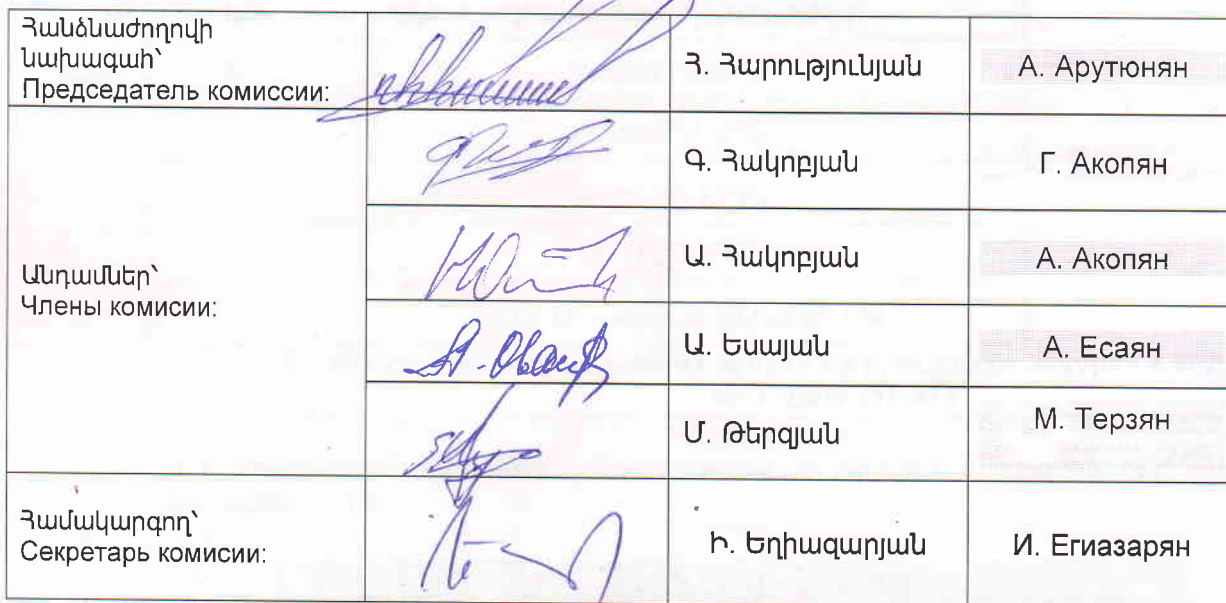 Հանձնաժողովի
նախագահ՝
Председатель комиссии:
Հ. Հարությունյան
А. Арутюнян
Գ. Հակոբյան
Г. Акопян
Անդամներ՝
Члены комисии:
Ա. Հակոբյան
А. Акопян
Ա. Եսայան
А. Есаян
Մ. Թերզյան
М. Терзян
Համակարգող՝
Секретарь комисии:
Ի. Եղիազարյան
И. Егиазарян